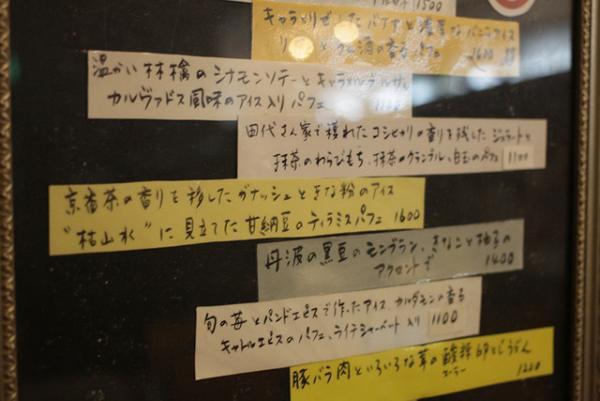 1500
キャラメリゼしたバナナと濃厚なバニラアイス
ラム酒の香るパフェ 1600
温かい林檎のシナモンソテーとキャラメル
カルヴァドス風味のアイス入りパフェ
田代さん家で穫れたコシヒカリの香りを残したジェラートと
抹茶のわらびもち、抹茶のクランブル、白玉のパフェ 1100
京番茶の香りを移したガナッシュときな粉のアイス
"枯山水"に見立てた甘納豆のティラミスパフェ 1600
丹波の黒豆のモンブラン、きなこと柚子の
アクセントで 1400
旬の苺とパンドエピスで作ったアイス、カルダモンの香る
キャトルエピスのパフェ、ライチシャーベット入り 1100
豚バラ肉といろいろな茸の酸辣卵とじうどん
スーラー 1200